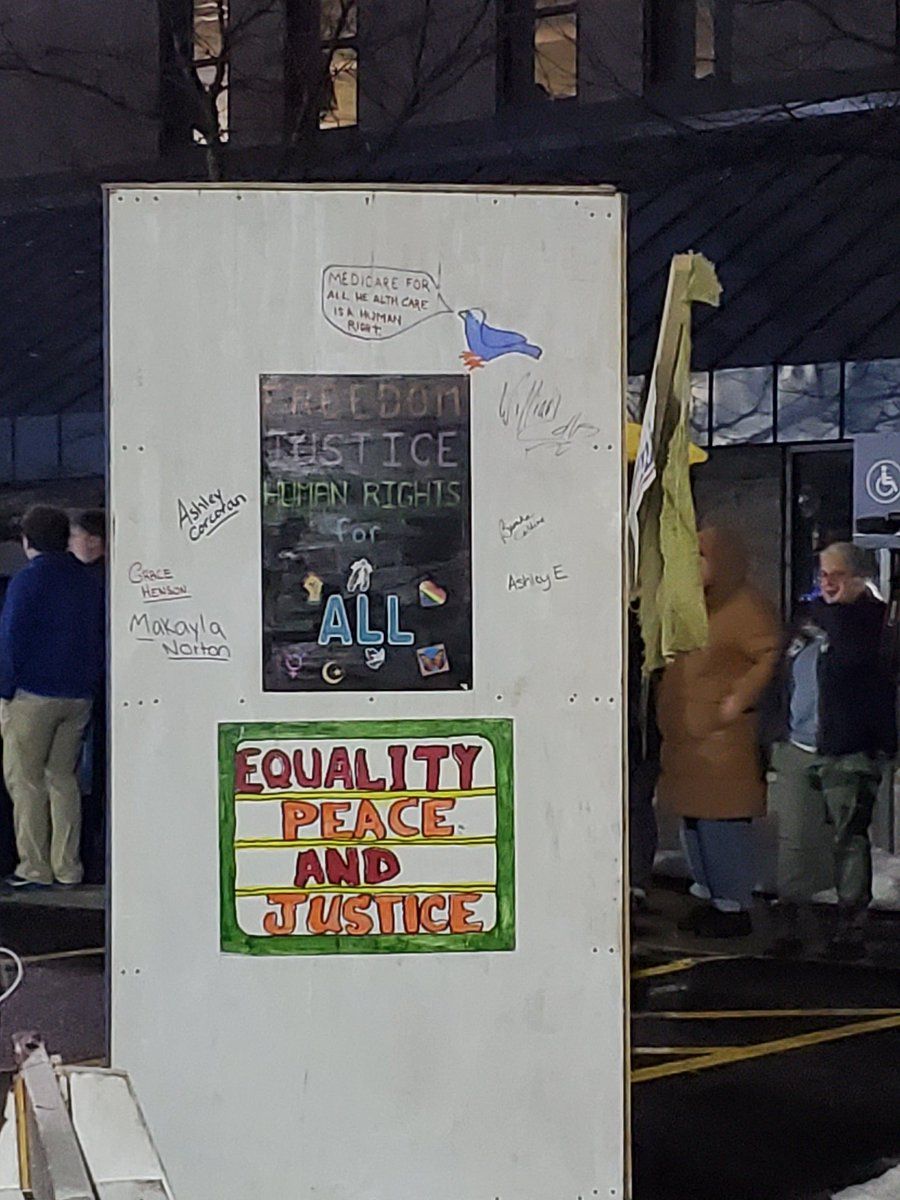 MEDICARE FOR
ALL HEALTH CARE
IS A HUMAN
RIGHT
FREEDOM
JUSTICE
HUMAN RIGHTS
for
ALL
William
Ashley
Corcoran
Grace
Henson
Makayla
Norton
Ashley E
EQUALITY
PEACE
AND
JUSTICE